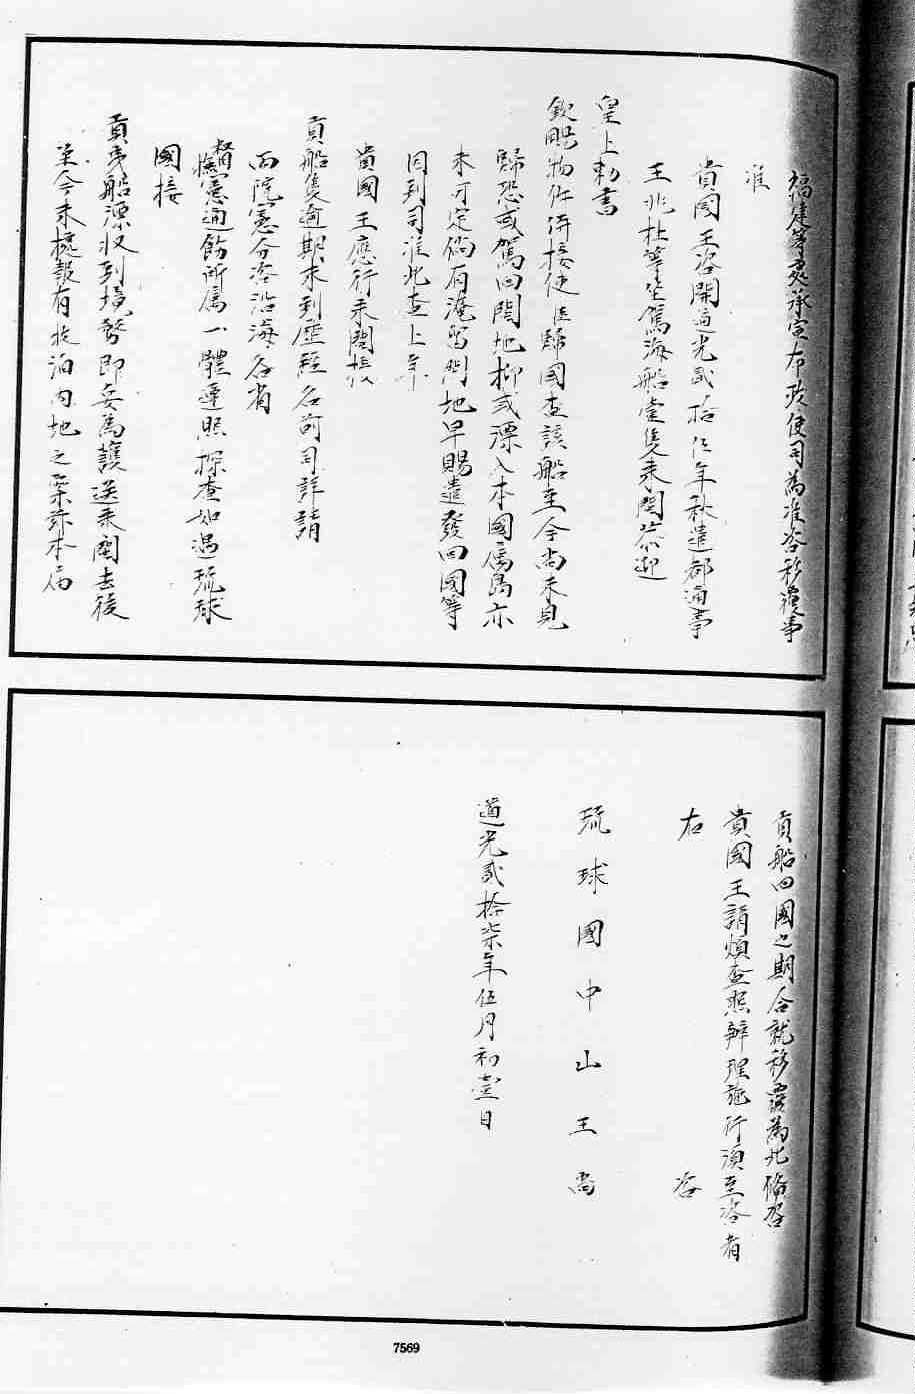 福建等處承宣布政使司為准咨移覆事
准
貴國王咨開道光貳拾伍年秋遣都通事
王兆杜等坐駕海船壹隻來閩恭迎
皇上勅書
欽賜物件併接使臣歸國查該船至今尚未見
歸恐或駕回閩地抑或漂入本國屬島亦
未可定倘有淹留閩地早賜遣發回國等
因到司准此查上年
貴國王應行來閩接
貢船隻逾期未到歷經各前司詳請
兩院憲分咨沿海各省
督撫憲通飭所屬一體遵照探查如遇琉球
國接
貢夷船漂收到境務即妥為護送來閩去後
至今未據報有收泊內地之案茲本屆
貢船回國之期合就移覆為此備咨
貴國王請煩查照辦理施行須至咨者
右 咨
琉球國中山王尚
道光貳拾柒年伍月初壹日
7569